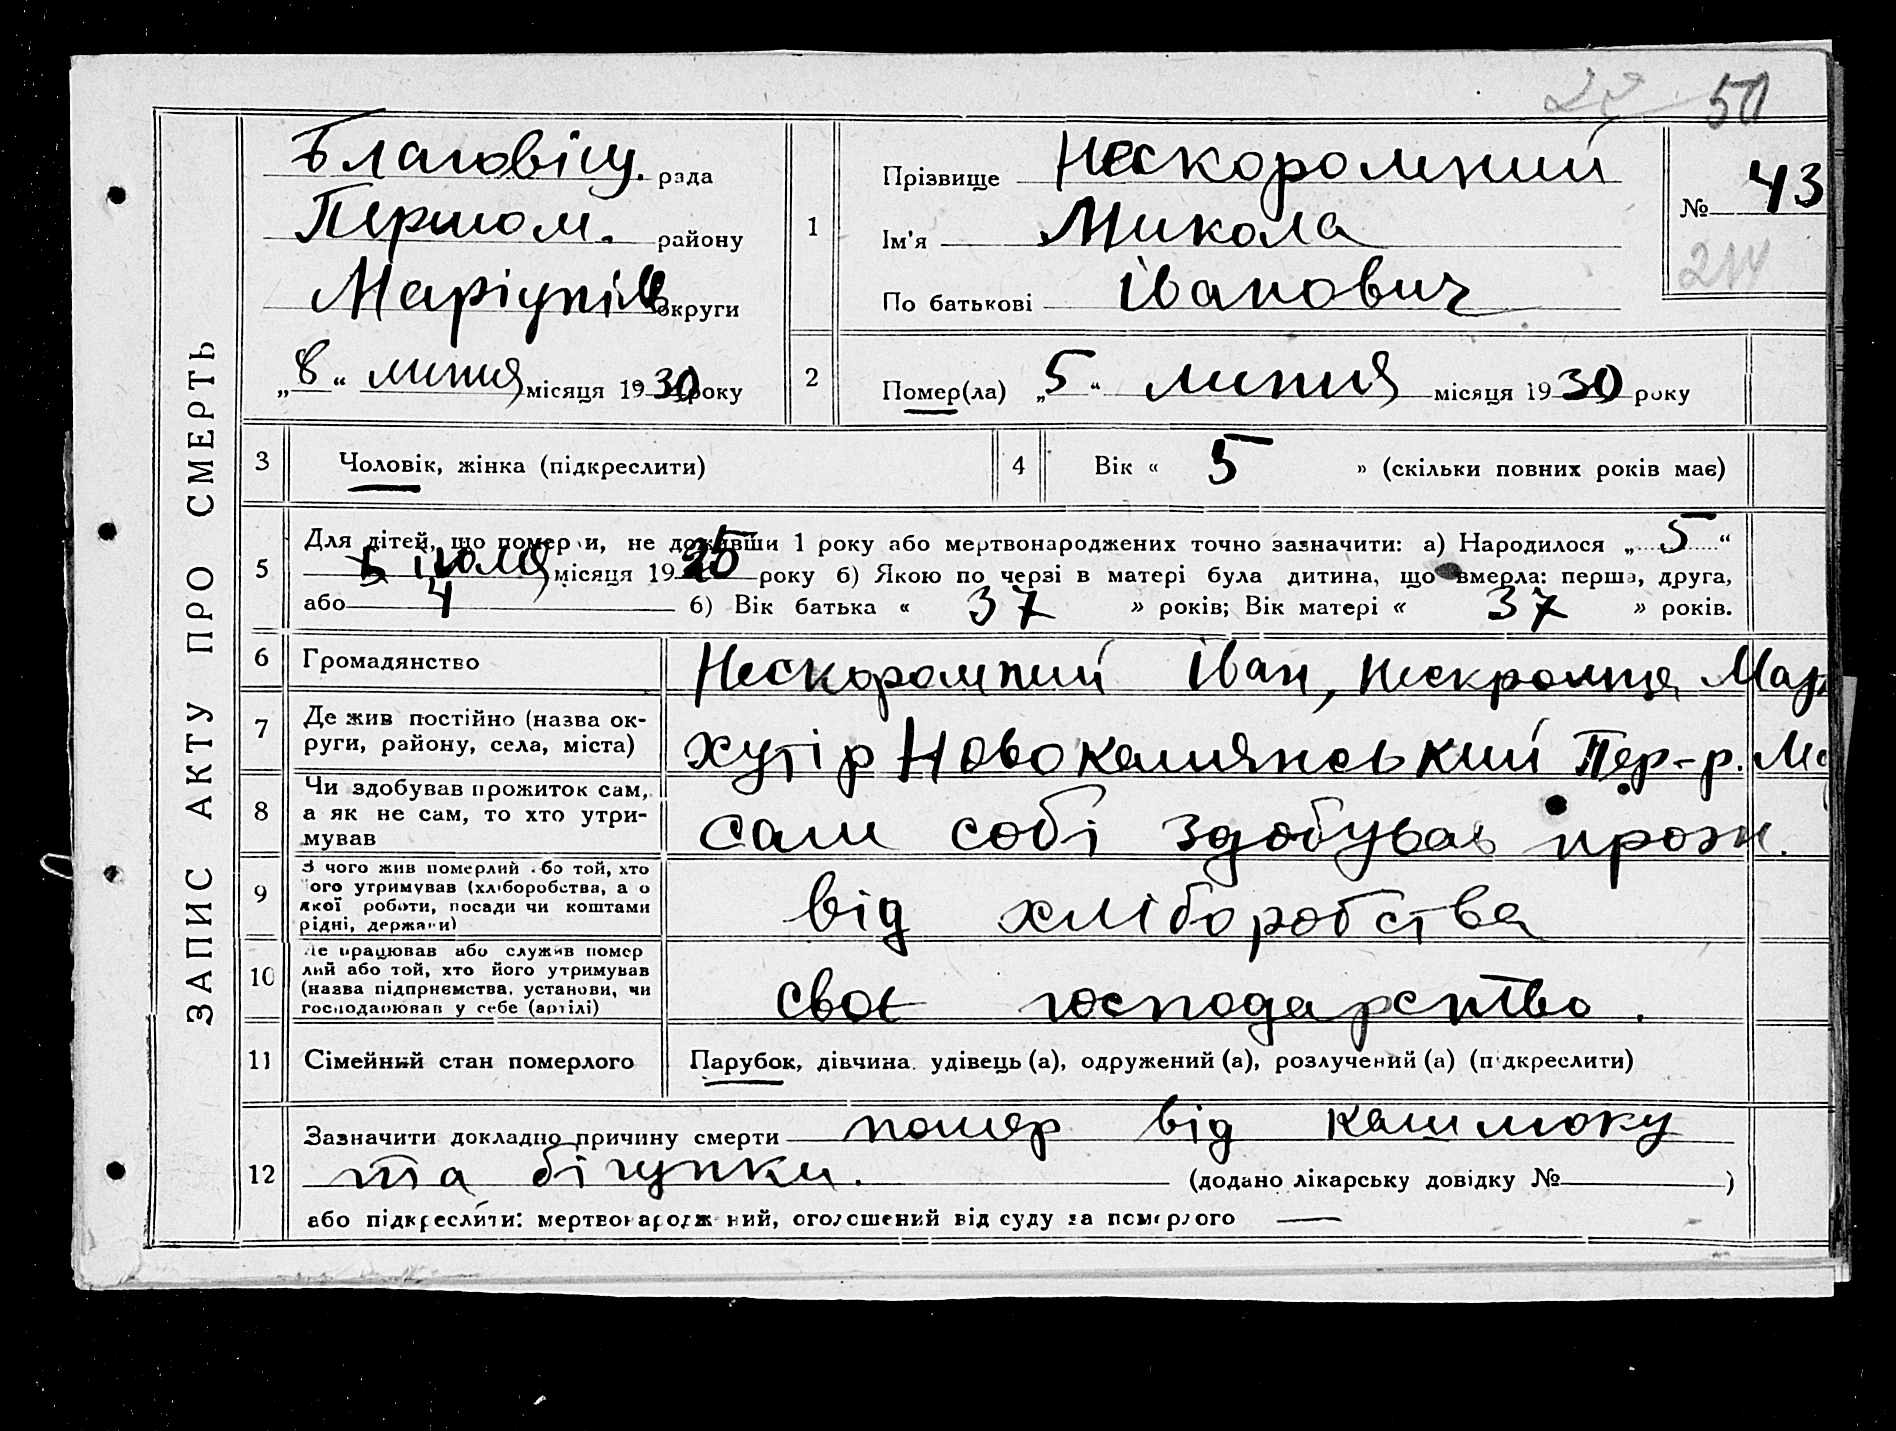 50
ЗАПИС АКТУ ПРО СМЕРТЬ
Благовіщ. рада
Першом. району
Маріупіль округи
„8“ липня місяця 1930 року
1
Прізвище Нескоромний
Ім'я Микола
По батькові Іванович
№ 43
214
2
Помер(ла) „5“ липня місяця 1930 року
3 Чоловік, жінка (підкреслити)
4 Вік « 5 » (скільки повних років має)
5
Для дітей, що померли, не доживши 1 року або мертвонароджених точно зазначити: а) Народилося „5“
місяця 1925 року б) Якою по черзі в матері була дитина, що вмерла: перша, друга,
або 4 б) Вік батька « 37 » років; Вік матері « 37 » років.
6 Громадянство Нескоромний Іван, Нескромна Мар
7 Де жив постійно (назва ок-
руги, району, села, міста) хутір Новокамянський Пер-р. Ма
8 Чи здобував прожиток сам,
а як не сам, то хто утри-
мував сам собі здобував прож.
9 З чого жив померлий або той, хто
його утримував (хліборобства, а о
якої роботи, посади чи коштами
рідні, держави) від хліборобства
10 Де працював або служив помер
лий або той, хто його утримував
(назва підприємства, установи, чи
господарював у себе (артілі) своє господарство.
11 Сімейний стан померлого Парубок, дівчина. удівець (а), одружений (а), розлучений (а) (підкреслити)
12
Зазначити докладно причину смерти помер від кашлюку
та бігунки.
(додано лікарську довідку № )
або підкреслити: мертвонароджений, оголошений від суду за померлого —